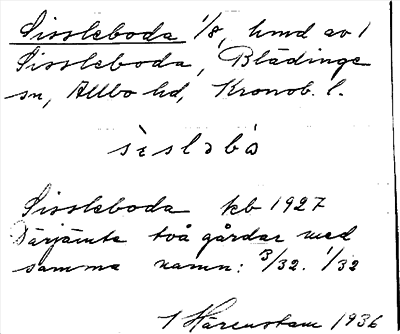 Sissleboda 1/8, hmd av 1
Sissleboda, Blädinge
sn, Allbo hd, Kronob. l.
sìslabò
Sissleboda kb 1927
Därjämte två gårdar med
samma namn: 3/32. 1/32
I Härenstam 1936